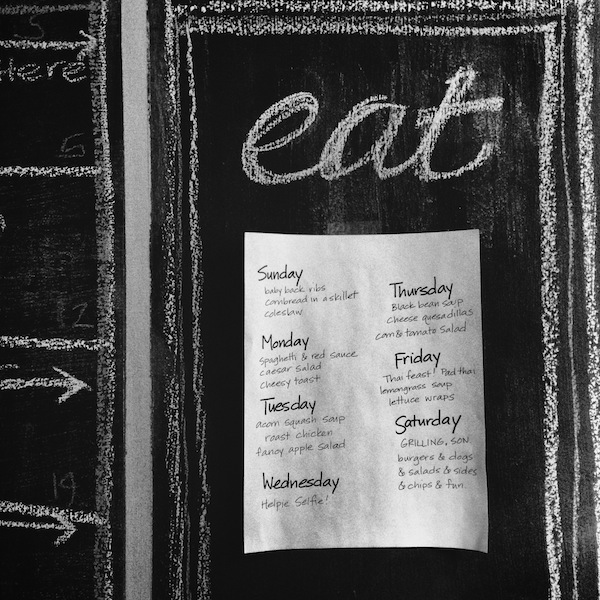 5
Here
5
12
19
eat
Sunday
baby back ribs
cornbread in a skillet
coleslaw
Monday
spaghetti & red sauce
caesar salad
cheesy toast
Tuesday
acorn squash soup
roast chicken
fancy apple salad
Wednesday
Helpie Selfie!
Thursday
Black bean soup
cheese quesadillas
corn & tomato salad
Friday
Thai feast! Pad thai
lemongrass soup
lettuce wraps
Saturday
GRILLING, SON.
burgers & dogs
& salads & sides
& chips & fun.